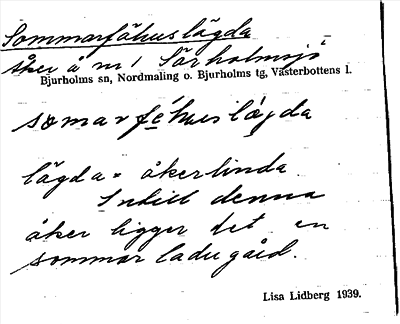 Sommarfähuslägda
åker å nr 1 Sörholmsjö
Bjurholms sn, Nordmaling o. Bjurholms tg, Västerbottens l.
sომarfähuslägda
lägda = åkerlinda
Intill denna
åker ligger det en
sommarladugård.
Lisa Lidberg 1939.